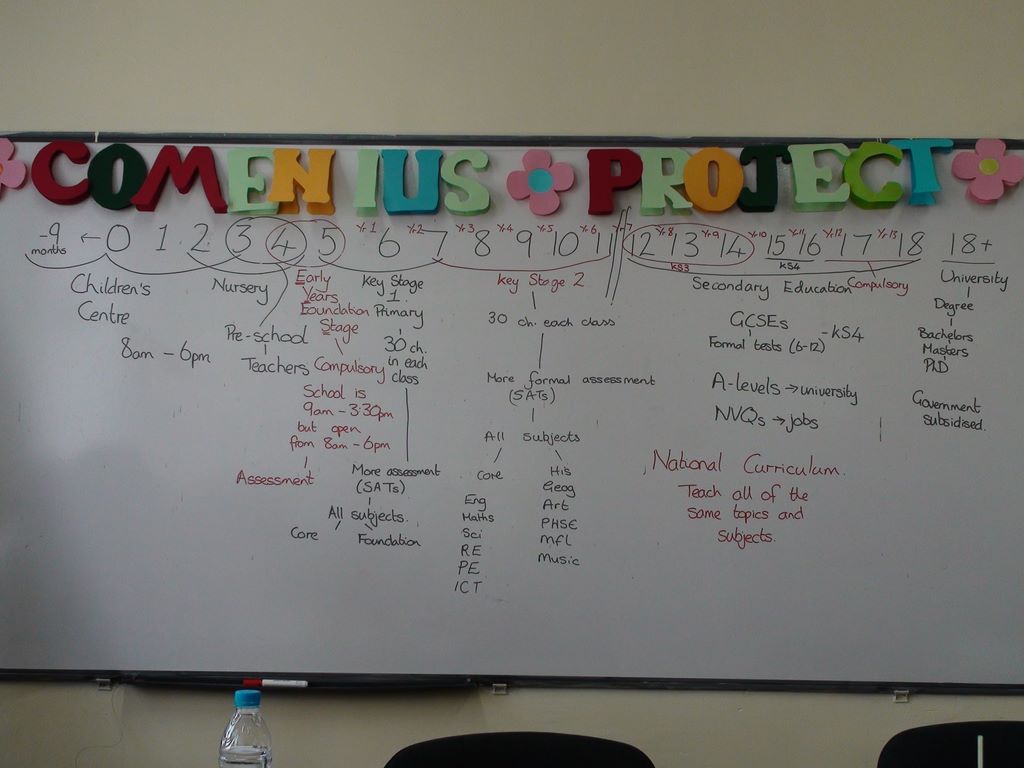 COMENIUS PROJECT
-9 months ← 0 1 2 3 4 5 6 7 8 9 10 11 12 13 14 15 16 17 18 18+
Yr.1 Yr.2 Yr.3 Yr.4 Yr.5 Yr.6 Yr.7 Yr.8 Yr.9 Yr.10 Yr.11 Yr.12 Yr.13
KS3 KS4
Children's
Centre
8am – 6pm
Nursery
Pre-school
Teachers
Early
Years
Foundation
Stage
Compulsory
School is
9am – 3:30pm
but open
from 8am – 6pm
Assessment
Key Stage
1
Primary
30 ch.
in each
class
More assessment
(SATs)
All subjects.
Core
Foundation
Key Stage 2
30 ch. each class
More formal assessment
(SATs)
All subjects
Core
Eng
Maths
Sci
RE
PE
ICT
His
Geog
Art
PHSE
MFL
Music
Secondary Education
Compulsory
GCSEs
Formal tests (6-12)
- KS4
A-levels → university
NVQs → jobs
National Curriculum.
Teach all of the
same topics and
subjects.
University
Degree
Bachelors
Masters
PhD
Government
subsidised.